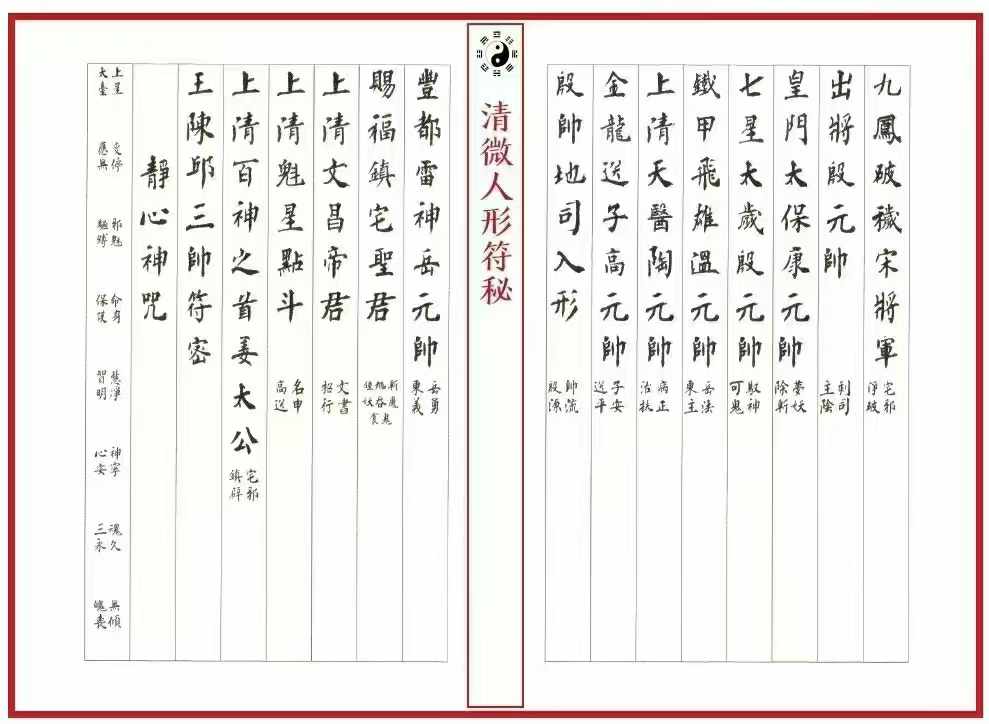 九鳳破穢宋將軍
淨宅
破邪
出將殷元帥
皇門太保康元帥
斬妖
七星太歲殷元帥
可馭
鬼神
鐵甲飛雄溫元帥
東岳
主法
上清天醫陶元帥
治病
扶正
金龍送子高元帥
送子
平安
殷帥地司入形
殷帥
源流
清微人形符秘
豐都雷神岳元帥
東岳
義勇
賜福鎮宅聖君
上清文昌帝君
上清魁星點斗
高名
上清百神之首姜太公
鎮宅
辟邪
王陳邱三帥符密
靜心神咒
太上
臺星
應變
無停
驅邪
縛魅
保命
護身
智慧
明淨
心神
安寧
三魂
永久
魄無
喪傾